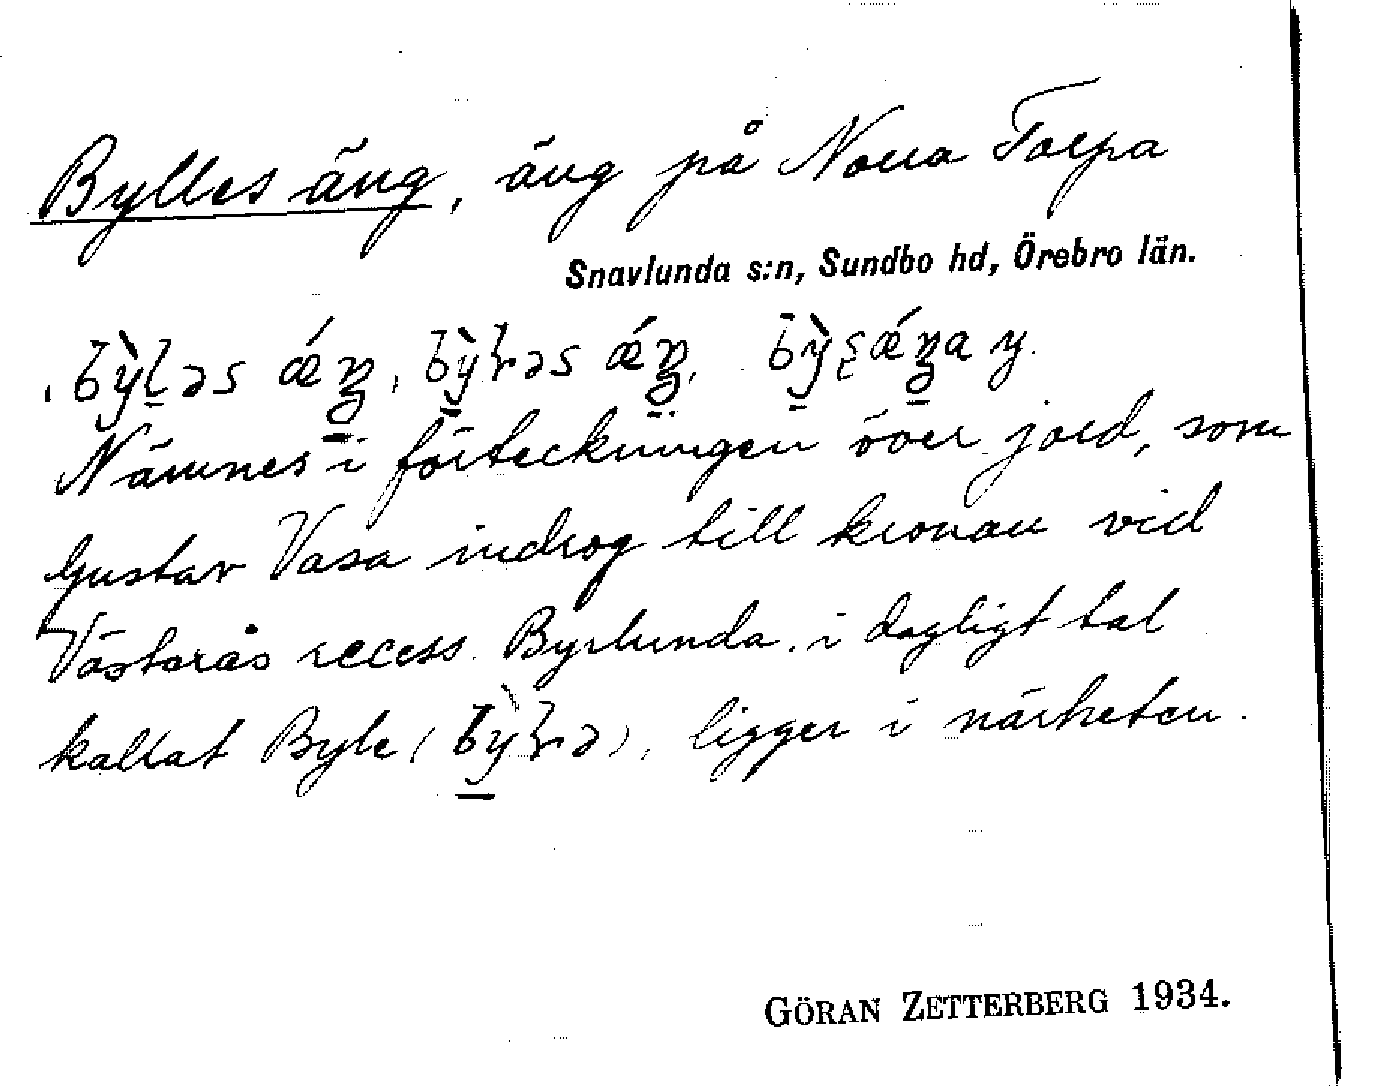 Bylles äng, äng på Norra Torpa
Snavlunda s:n, Sundbo hd, Örebro län.
Nämnes i förteckningen över jord, som
Gustav Vasa indrog till kronan vid
Västerås recess. Byrlunda, i dagligt tal
kallat Byle ( ), ligger i närheten.
GÖRAN ZETTERBERG 1934.